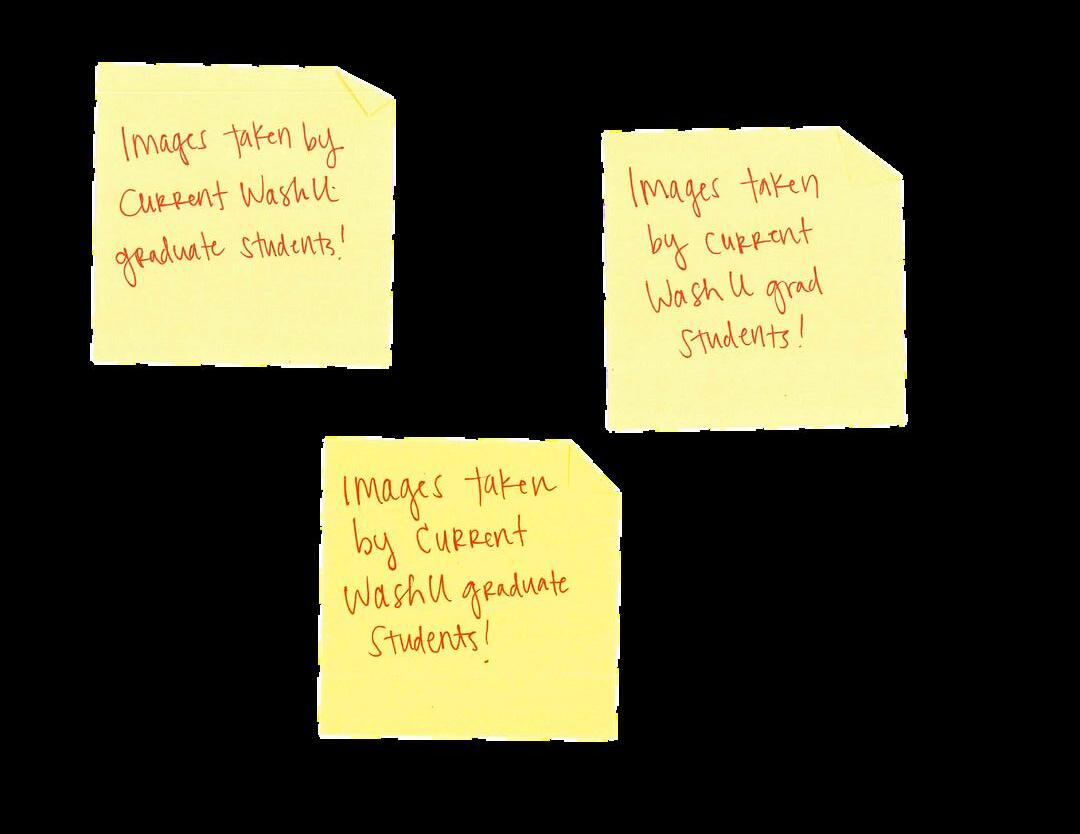 Images taken by
Current WashU
graduate students!
Images taken
by current
WashU grad
students!
Images taken
by current
WashU graduate
students!